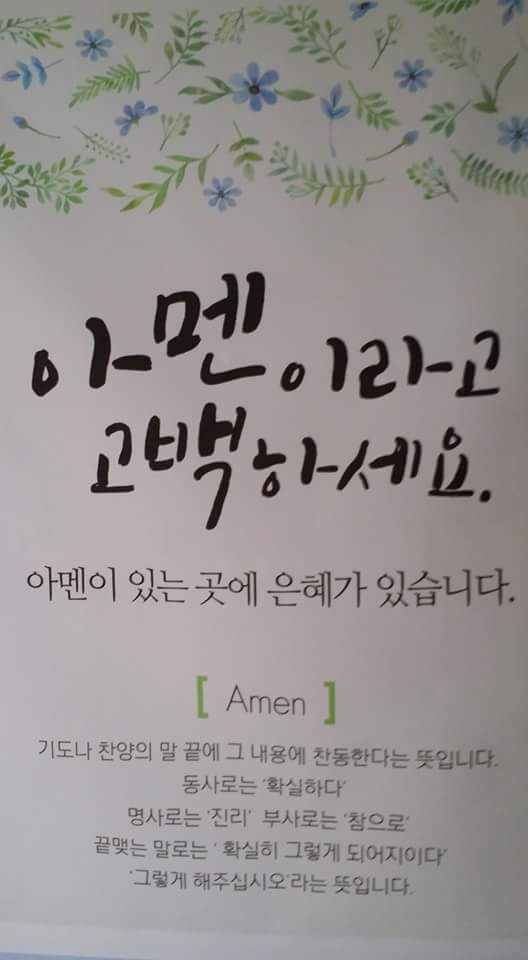 아멘이라고
고백하세요.
아멘이 있는 곳에 은혜가 있습니다.
[ Amen ]
기도나 찬양의 말 끝에 그 내용에 찬동한다는 뜻입니다.
동사로는 '확실하다'
명사로는 '진리' 부사로는 '참으로'
끝맺는 말로는 ' 확실히 그렇게 되어지이다'
'그렇게 해주십시오'라는 뜻입니다.